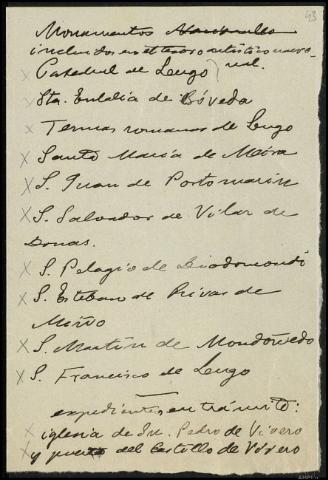 43
Monumentos Nacionales
incluidos en el tesoro artistico nacio-
Catedral de Lugo nal.
X Sta. Eulalia de Bóveda
X Termas romanas de Lugo
X Santa María de Meira
X S. Juan de Portomarín
X S. Salvador de Vilar de
Donas.
X S. Pelagio de Diodomondi
X S. Esteban de Rivas de
Miño
X S. Martín de Mondoñedo
X S. Francisco de Lugo
expedientes en trámite:
X iglesia de Sn. Pedro de Vivero
X y puerta del Castillo de Vivero